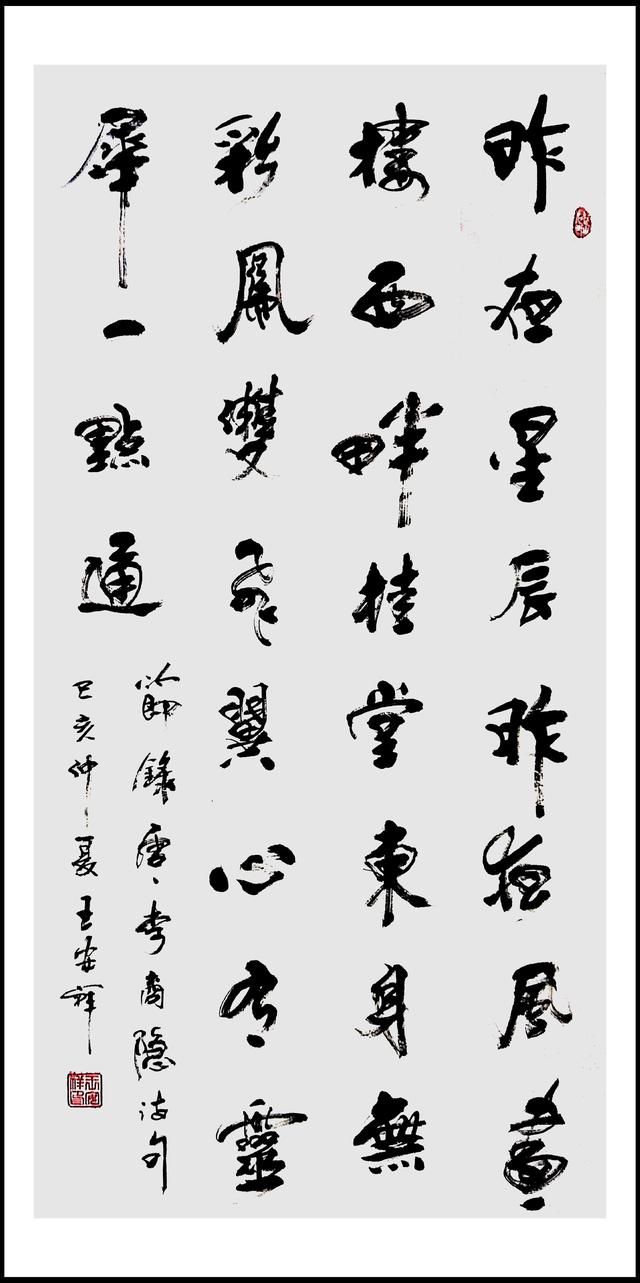 昨夜星辰昨夜風畫
樓西畔桂堂東身無
彩鳳雙飛翼心有靈
犀一點通
節錄唐、李商隐诗句
己亥仲夏王安祥